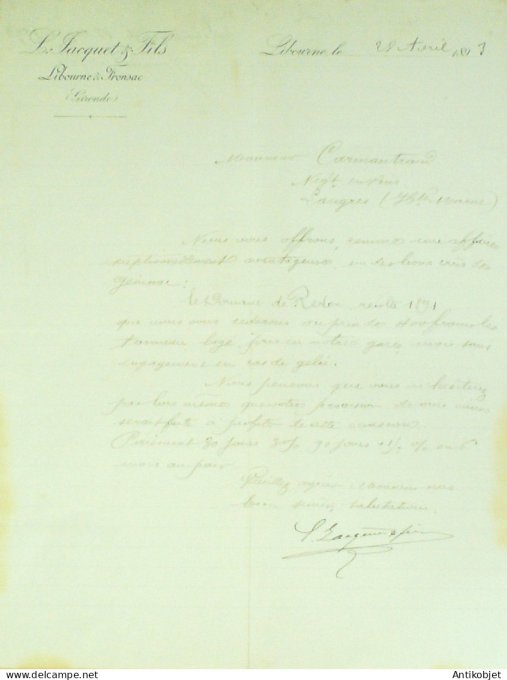 L. Jacquet & Fils
Libourne & Fronsac
(Gironde)
Libourne, le 28 Avril 1893
Monsieur Carmantrand
Négt en vins
Langres (Hte Marne)
Nous vous offrons, comme une affaire
exceptionnellement avantageuse un des bons crus de
Le Domaine de
que nous vous au prix de 400 francs les
tonneau logé, pris en notre gare, mais sans
engagement en cas de gelée.
Nous pensons que vous n'hésiterez
pas lors même que votre provision de vins
serait faite à profiter de cette occasion.
Paiement 30 jours 3% 90 jours
mois au pair
Veuillez agréer Monsieur nos
bien sincères salutations.
L. Jacquet & fils
Antikobjet